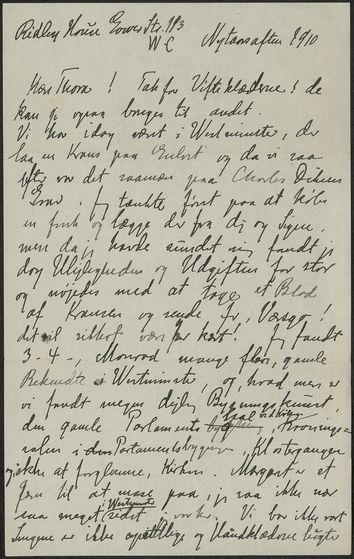 Ridley House Gower Str. 183
WC Nytaarsaften 1910
Kære Thora! Tak for Vifteklæderne! de
kan jo ogsaa bruges til andet.
Vi har idag været i Westminster, der
laa en Krans paa og da vi saa
efter var det saamæn paa Charles Dickens
Grav. Jeg tænkte først paa at købe
en frisk og lægge der fra dig og Signe,
men da jeg havde sundet mig fandt jeg
dog Ulejligheden og Udgiften for stor
og nøjedes med at tage et Blad
af Kransen og sende Jer, Værsgo!
det vil sikkert være Jer kært! Jeg fandt
3-4-, Monrad mange flere, gamle
Bekendte i Westminster, og hvad mer er
vi fandt megen dejlig Bygningskunst,
den gamle Parlaments Sal, Kronings-
salen i Parlamentsbygningen, Klostergangen
ikke at forglemme, Kirken. Margaret er et
fæ til at mase paa, jeg saa ikke nær
saa meget i Westminster sidst. Vi bor ikke vort
Sengene er ikke appetitlige og Haandklæderne